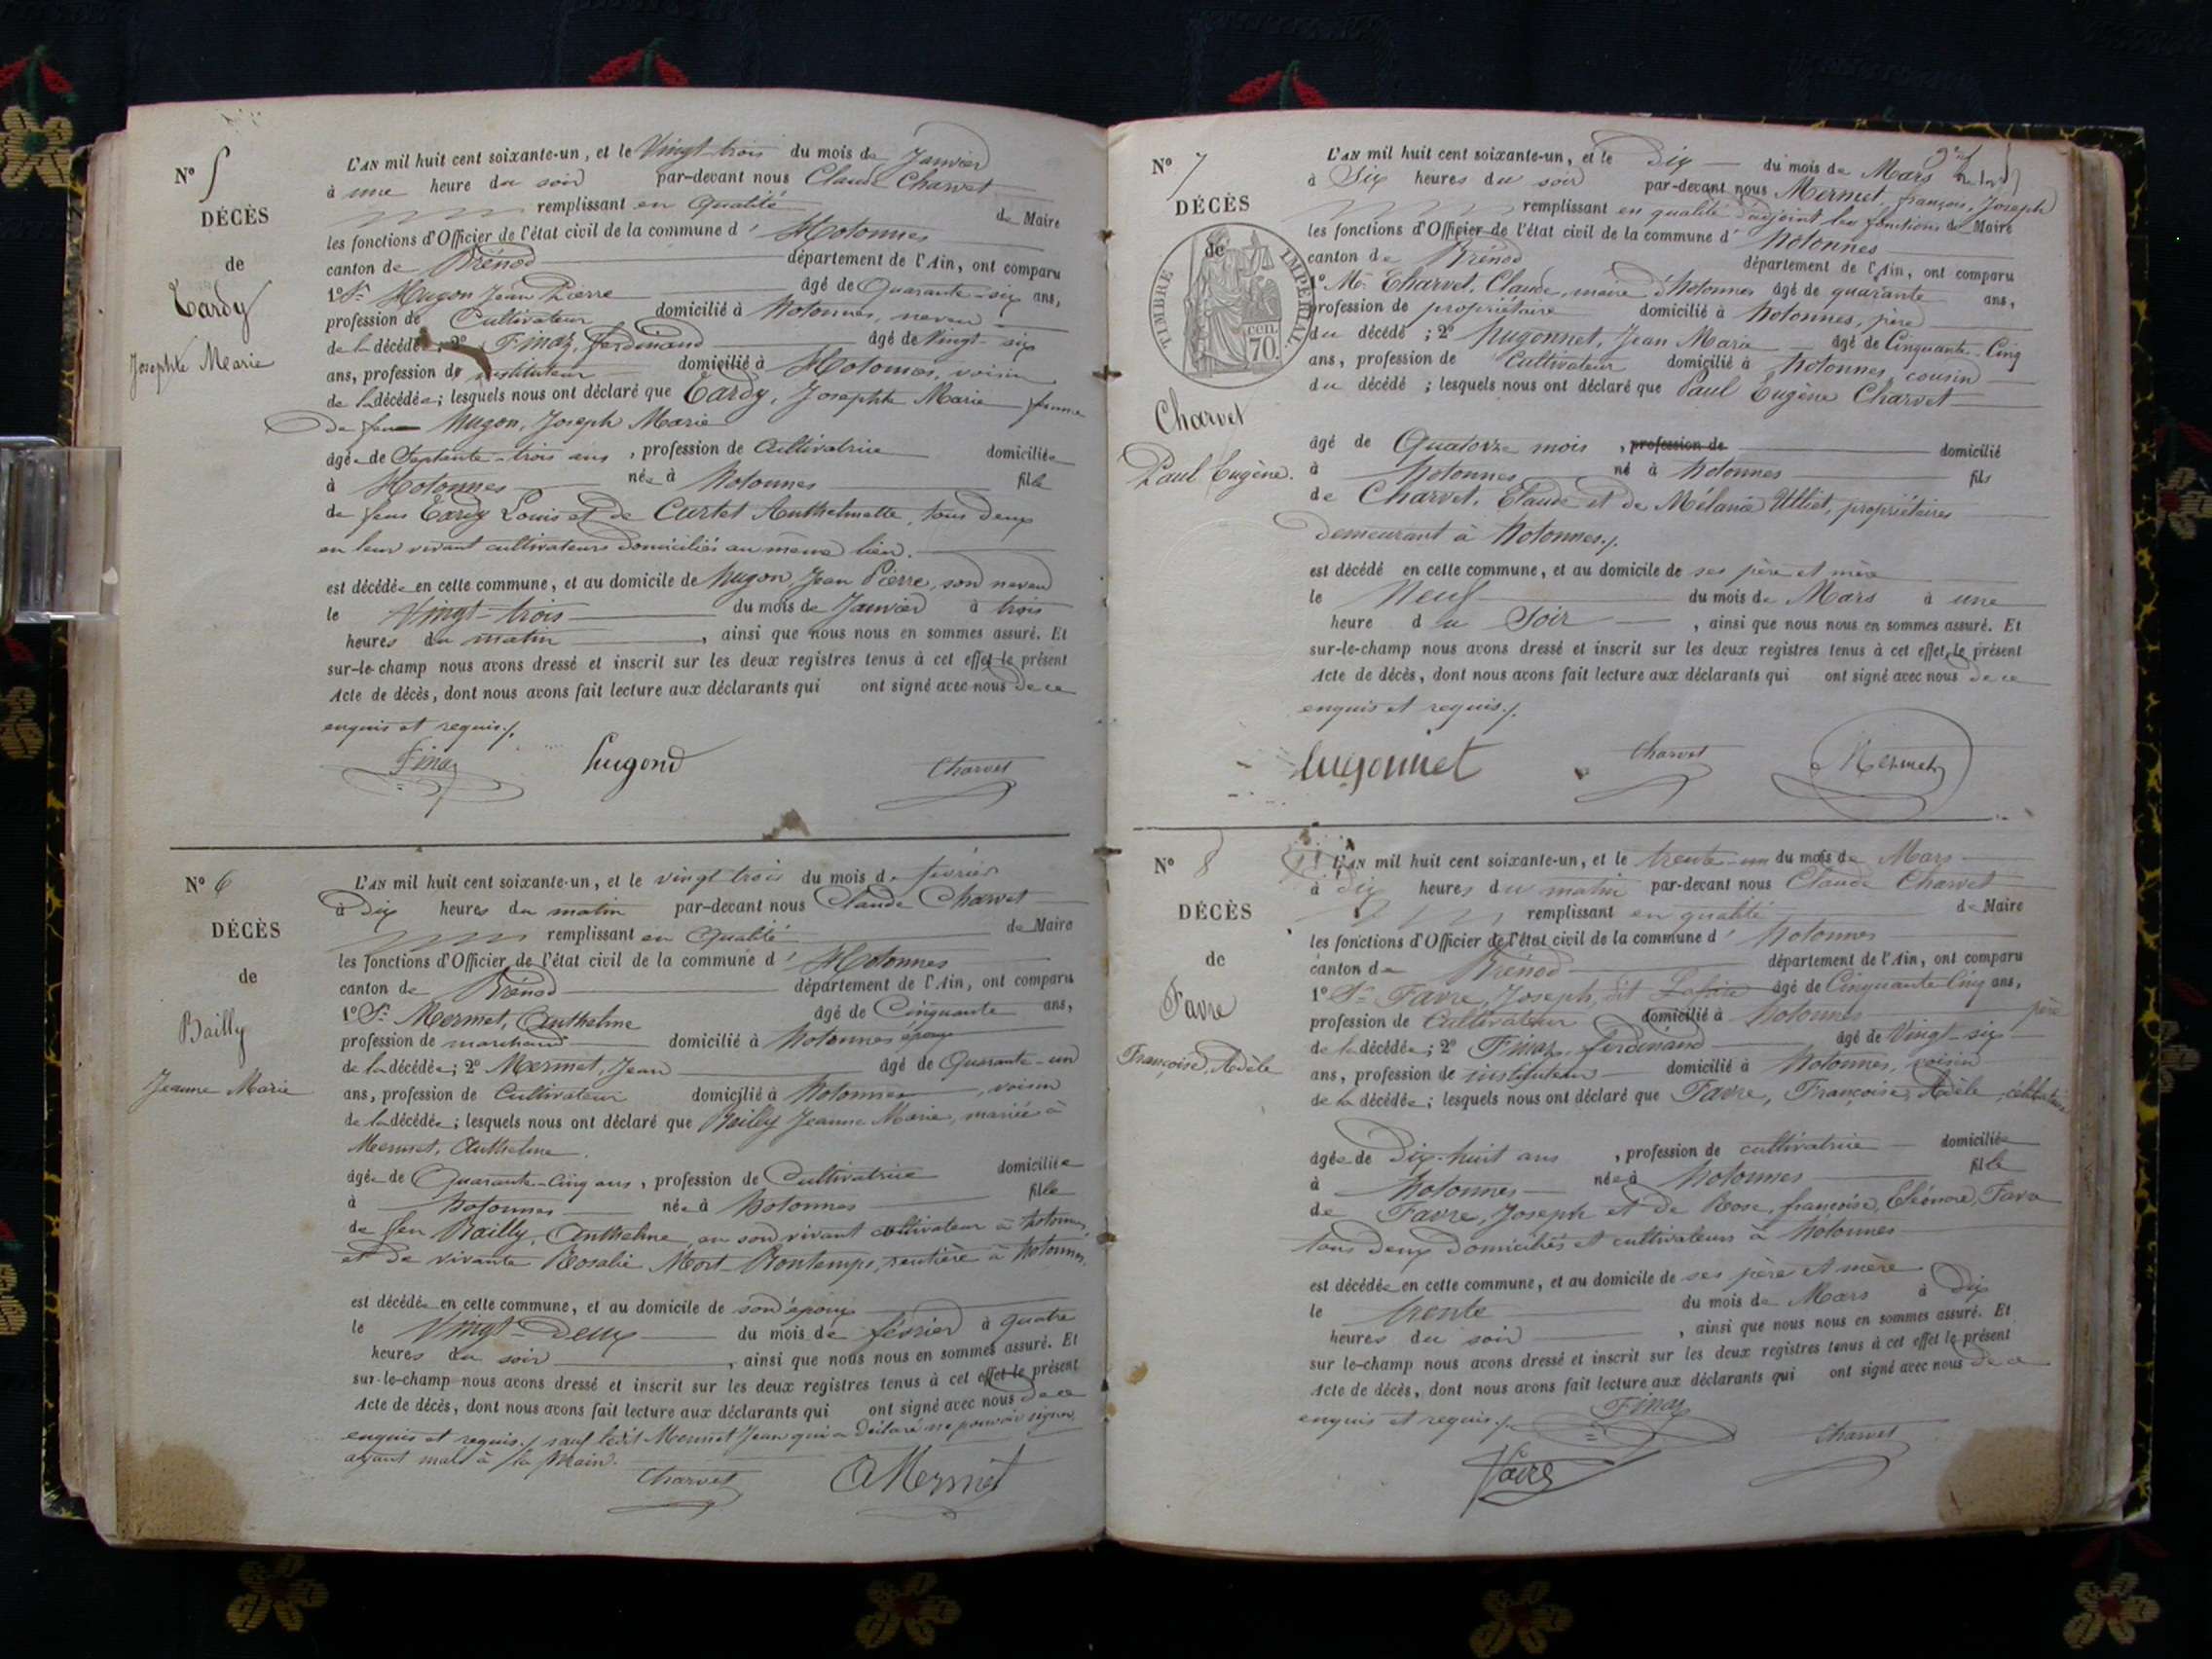 N° 5
DÉCÈS
de
Tardy
Josephte Marie
L'AN mil huit cent soixante-un, et le Vingt-trois du mois de Janvier
à une heure du soir par-devant nous Claude Charvet
remplissant en qualité de Maire
les fonctions d'Officier de l'état civil de la commune d' Hotonnes
canton de Brénod département de l'Ain, ont comparu
1° Sr Hugon Jean Pierre âgé de Quarante-six ans,
profession de Cultivateur domicilié à Hotonnes, neveu
de la décédée; 2° Finaz, ferdinand âgé de Vingt-six
ans, profession d' instituteur domicilié à Hotonnes, voisin
de la décédée; lesquels nous ont déclaré que Tardy, Josephte Marie femme
de feu Hugon, Joseph Marie
âgée de Septante-trois ans, profession de Cultivatrice domiciliée
à Hotonnes née à Hotonnes fille
de feus Tardy Louis et de Curtet Anthelmette, tous deux
en leur vivant cultivateurs domiciliés au même lieu.
est décédée en cette commune, et au domicile de hugon, Jean Pierre, son neveu
le Vingt-trois du mois de Janvier à trois
heures du matin, ainsi que nous nous en sommes assuré. Et
sur-le-champ nous avons dressé et inscrit sur les deux registres tenus à cet effet le présent
Acte de décès, dont nous avons fait lecture aux déclarants qui ont signé avec nous de ce
enquis et requis./.
Finaz hugond Charvet
N° 6
DÉCÈS
de
Bailly
Jeanne Marie
L'AN mil huit cent soixante-un, et le vingt trois du mois de février
à Dix heures du matin par-devant nous Claude Charvet
remplissant en Qualité de Maire
les fonctions d'Officier de l'état civil de la commune d' Hotonnes
canton de Brénod département de l'Ain, ont comparu
1° Sr Mermet, Anthelme âgé de Cinquante ans,
profession de marchand domicilié à Hotonnes époux
de la décédée; 2° Mermet, Jean âgé de Quarante-un
ans, profession de Cultivateur domicilié à Hotonnes, voisin
de la décédée; lesquels nous ont déclaré que Bailly Jeanne Marie, mariée à
Mermet, Anthelme.
âgée de Quarante-Cinq ans, profession de Cultivatrice domiciliée
à hotonnes née à hotonnes fille
de feu Bailly, Anthelme, en son vivant cultivateur à hotonnes,
et de vivante Rosalie Mort-Bontemps, rentière à hotonnes.
est décédée en cette commune, et au domicile de son époux
le Vingt-Deux du mois de février à quatre
heures du soir, ainsi que nous nous en sommes assuré. Et
sur-le-champ nous avons dressé et inscrit sur les deux registres tenus à cet effet le présent
Acte de décès, dont nous avons fait lecture aux déclarants qui ont signé avec nous de ce
enquis et requis./. sauf ledit Mermet Jean qui a déclaré ne pouvoir signer,
ayant mal à la main.
Charvet AMermet
N° 7
DÉCÈS
de
TIMBRE IMPÉRIAL
70 cen.
Charvet
Paul Eugène.
L'AN mil huit cent soixante-un, et le Dix du mois de Mars
à Six heures du soir par-devant nous Mermet, françois, Joseph
remplissant en qualité d'adjoint les fonctions de Maire
les fonctions d'Officier de l'état civil de la commune d' hotonnes
canton de Brénod département de l'Ain, ont comparu
1° Mr Charvet, Claude, maire d'hotonnes âgé de quarante ans,
profession de propriétaire domicilié à hotonnes, père
du décédé; 2° hugonnet, Jean Marie âgé de Cinquante-Cinq
ans, profession de Cultivateur domicilié à hotonnes, cousin
du décédé; lesquels nous ont déclaré que Paul Eugène Charvet
âgé de Quatorze mois, profession de domicilié
à hotonnes né à hotonnes fils
de Charvet, Claude et de Mélanie Ulliet, propriétaires
demeurant à hotonnes./.
est décédé en cette commune, et au domicile de ses père et mère
le Neuf du mois de Mars à une
heure du Soir, ainsi que nous nous en sommes assuré. Et
sur-le-champ nous avons dressé et inscrit sur les deux registres tenus à cet effet, le présent
Acte de décès, dont nous avons fait lecture aux déclarants qui ont signé avec nous de ce
enquis et requis./.
hugonnet Charvet Mermet
N° 8
DÉCÈS
de
Favre
Françoise, Adèle
L'AN mil huit cent soixante-un, et le trente-un du mois de Mars
à dix heures du matin par-devant nous Claude Charvet
remplissant en qualité de Maire
les fonctions d'Officier de l'état civil de la commune d' hotonnes
canton de Brénod département de l'Ain, ont comparu
1° Sr Favre, Joseph, dit âgé de Cinquante-Cinq ans,
profession de Cultivateur domicilié à hotonnes père
de la décédée; 2° Finaz, ferdinand âgé de Vingt-six
ans, profession de instituteur domicilié à hotonnes, voisin
de la décédée; lesquels nous ont déclaré que Favre, Françoise, Adèle, célibataire
âgée de Dix-huit ans, profession de cultivatrice domiciliée
à hotonnes née à hotonnes fille
de Favre, Joseph et de Rose, françoise, Eléonore, Favre
tous deux domiciliés et cultivateurs à hotonnes
est décédée en cette commune, et au domicile de ses père et mère
le trente du mois de Mars à dix
heures du soir, ainsi que nous nous en sommes assuré. Et
sur le-champ nous avons dressé et inscrit sur les deux registres tenus à cet effet le présent
Acte de décès, dont nous avons fait lecture aux déclarants qui ont signé avec nous de ce
enquis et requis./. Finaz
Charvet